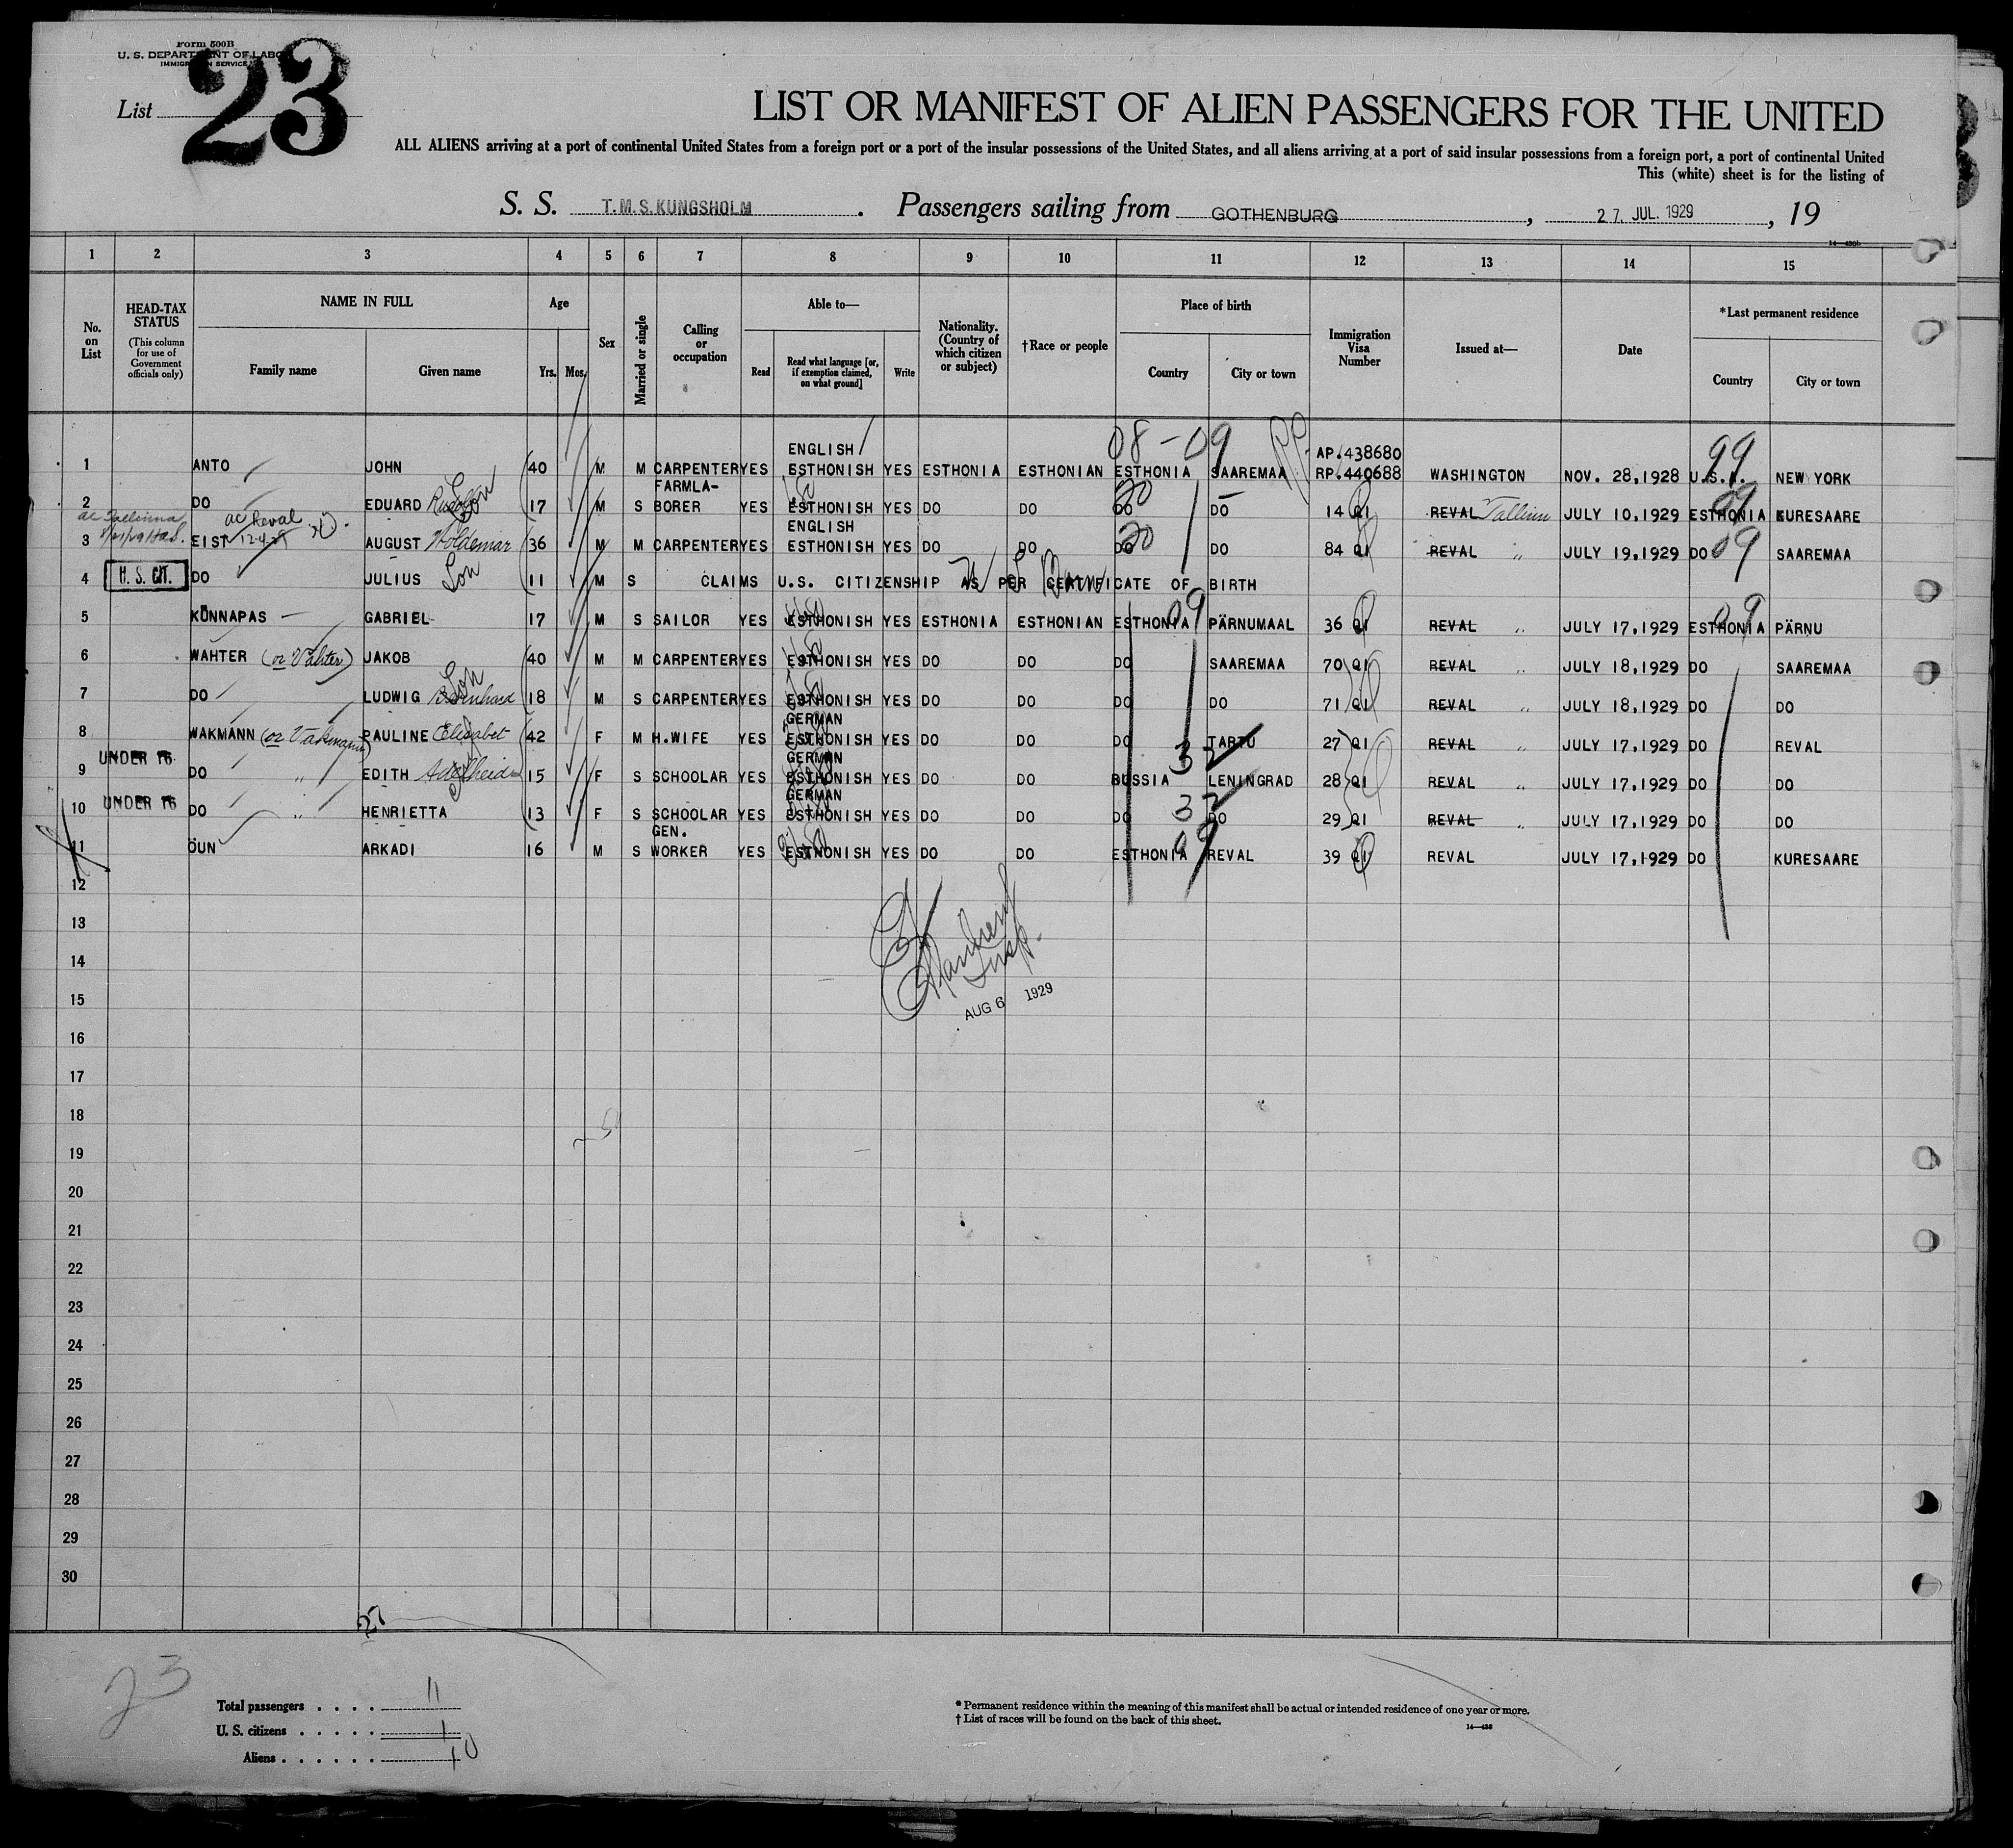 Form 500B
U. S. DEPARTMENT OF LABOR
IMMIGRATION SERVICE
List 23
LIST OR MANIFEST OF ALIEN PASSENGERS FOR THE UNITED
ALL ALIENS arriving at a port of continental United States from a foreign port or a port of the insular possessions of the United States, and all aliens arriving at a port of said insular possessions from a foreign port, a port of continental United
This (white) sheet is for the listing of
S. S. T.M.S. KUNGSHOLM . Passengers sailing from GOTHENBURG , 27. JUL. 1929 , 19
1 2 3 4 5 6 7 8 9 10 11 12 13 14 15
No. on List
HEAD-TAX STATUS (This column for use of Government officials only)
NAME IN FULL Family name Given name
Age Yrs. Mos.
Sex
Married or single
Calling or occupation
Able to— Read Read what language [or, if exemption claimed, on what ground] Write
Nationality. (Country of which citizen or subject)
†Race or people
Place of birth Country City or town
Immigration Visa Number
Issued at—
Date
*Last permanent residence Country City or town
08-09 99
ENGLISH AP.438680
1 ANTO JOHN 40 M M CARPENTER YES ESTHONISH YES ESTHONIA ESTHONIAN ESTHONIA SAAREMAA RP.440688 WASHINGTON NOV. 28,1928 U.S.A. NEW YORK
FARMLA-
2 DO EDUARD Rudolf Son 17 M S BORER YES ESTHONISH YES DO DO DO DO 14 QI REVAL Tallinn JULY 10,1929 ESTHONIA KURESAARE
ac Reval 12-4-29
ENGLISH
3 EIST AUGUST Woldemar 36 M M CARPENTER YES ESTHONISH YES DO DO DO DO 84 QI REVAL " JULY 19,1929 DO 09 SAAREMAA
4 U. S. CIT. DO JULIUS Son 11 M S CLAIMS U.S. CITIZENSHIP AS PER CERTIFICATE OF BIRTH
5 KÖNNAPAS GABRIEL 17 M S SAILOR YES ESTHONISH YES ESTHONIA ESTHONIAN ESTHONIA 09 PÄRNUMAAL 36 QI REVAL " JULY 17,1929 ESTHONIA 09 PÄRNU
6 WAHTER (or Vahter) JAKOB 40 M M CARPENTER YES ESTHONISH YES DO DO DO SAAREMAA 70 QI REVAL " JULY 18,1929 DO SAAREMAA
7 DO LUDWIG Bernhard Son 18 M S CARPENTER YES ESTHONISH YES DO DO DO DO 71 QI REVAL " JULY 18,1929 DO DO
GERMAN
8 WAKMANN (or Vakmann) PAULINE Elisabet 42 F M H.WIFE YES ESTHONISH YES DO DO DO TARTU 27 QI REVAL " JULY 17,1929 DO REVAL
GERMAN
9 UNDER 16 DO " EDITH Adelheid 15 F S SCHOOLAR YES ESTHONISH YES DO DO RUSSIA LENINGRAD 28 QI REVAL JULY 17,1929 DO DO
GERMAN
10 UNDER 16 DO " HENRIETTA 13 F S SCHOOLAR YES ESTHONISH YES DO DO DO DO 29 QI REVAL " JULY 17,1929 DO DO
GEN.
11 ÖUN ARKADI 16 M S WORKER YES ESTHONISH YES DO DO ESTHONIA 09 REVAL 39 QI REVAL JULY 17,1929 DO KURESAARE
12
13
14
15
Insp.
AUG 6 1929
16
17
18
19
20
21
22
23
24
25
26
27
28
29
30
27
23
Total passengers . . . . 11
U. S. citizens . . . . . 1
Aliens . . . . . . 10
* Permanent residence within the meaning of this manifest shall be actual or intended residence of one year or more.
† List of races will be found on the back of this sheet.